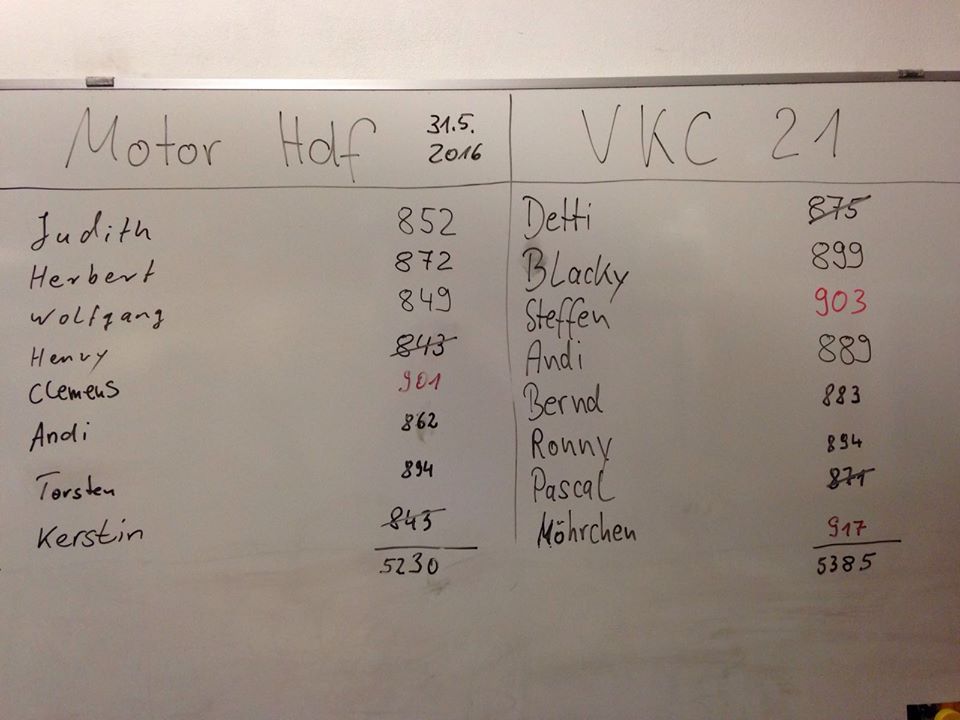 Motor Hdf 31.5. 2016 VKC 21
Judith 852 Detti 875
Herbert 872 Blacky 899
Wolfgang 849 Steffen 903
Henry 843 Andi 889
Clemens 901 Bernd 883
Andi 862 Ronny 894
Torsten 894 Pascal 871
Kerstin 843 Möhrchen 917
5230 5385